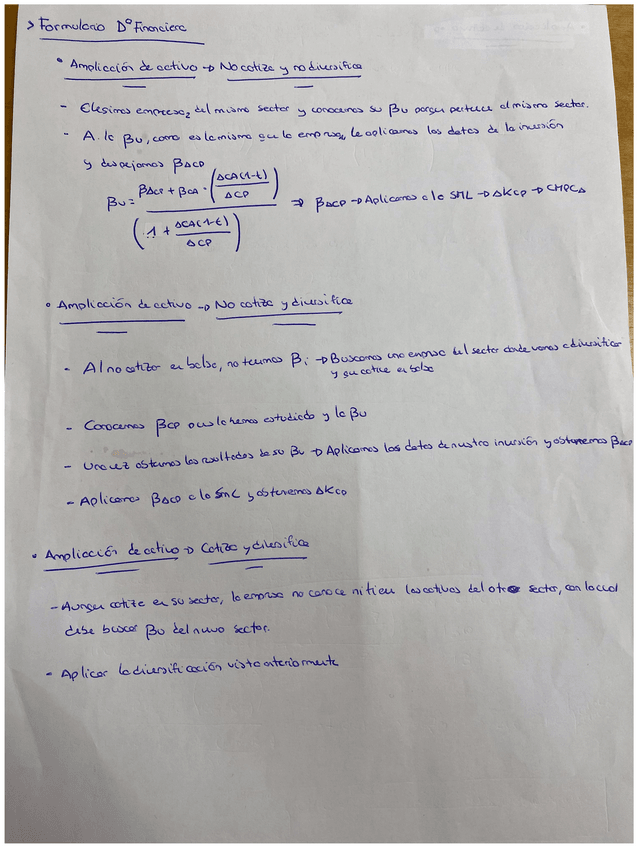 > Formulario Dº Financiera
• Ampliación de activo → No cotiza y no diversifica
- Elegimos empresa, del mismo sector y conocemos su βu porque pertenece al mismo sector.
- A la βu, como es la misma que la empresa, le aplicamos los datos de la inversión
y despejamos βΔCP
βu = (βΔCP + βCA · (ΔCA(1-t) / ΔCP)) / (1 + ΔCA(1-t) / ΔCP) ⇒ βΔCP → Aplicamos a la SML → ΔKCP → CMPCΔ
• Ampliación de activo → No cotiza y diversifica
- Al no cotizar en bolsa, no tenemos βi → Buscamos una empresa del sector donde vamos a diversificar
y que cotice en bolsa
- Conocemos βCP lo hemos estudiado y la βu
- Una vez obtenemos los resultados de su βu → Aplicamos los datos de nuestra inversión y obtenemos βΔCP
- Aplicamos βΔCP a la SML y obtenemos ΔKCP
• Ampliación de activo → Cotiza y diversifica
- Aunque cotice en su sector, la empresa no conoce ni tiene los activos del otro sector, con lo cual
debe buscar βu del nuevo sector.
- Aplicar la diversificación vista anteriormente